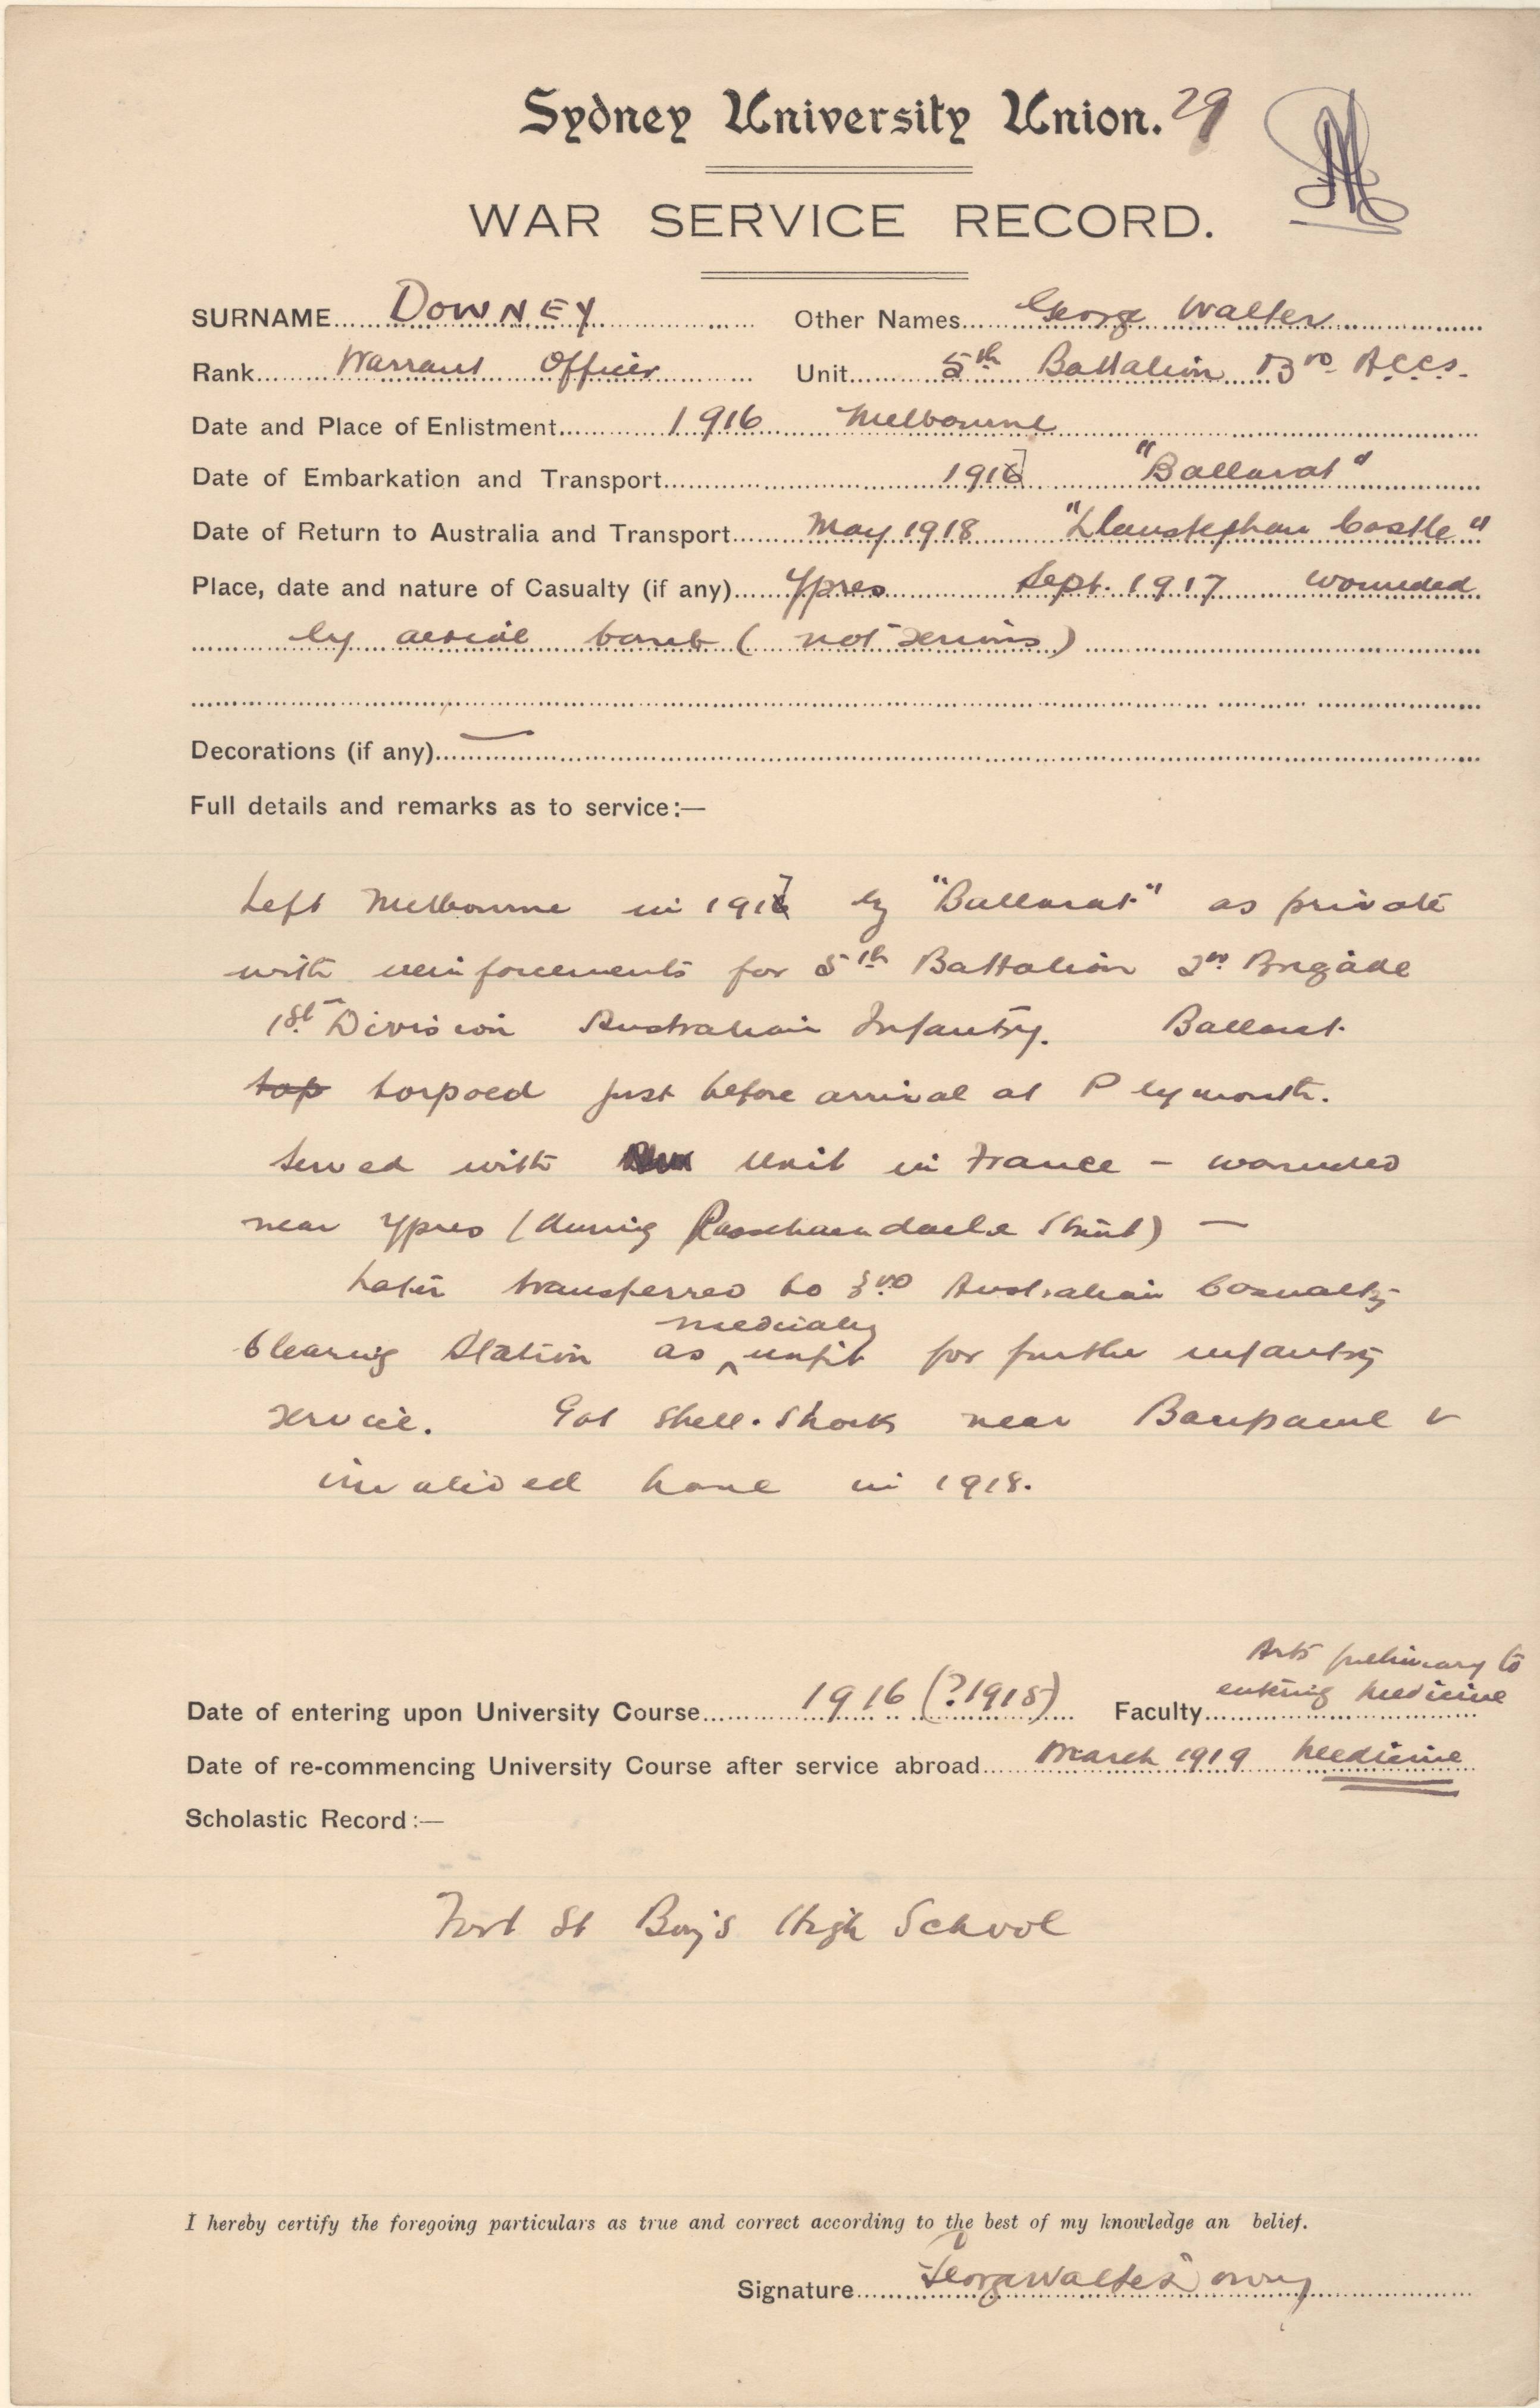 Sydney University Union. 29
WAR SERVICE RECORD.
SURNAME DOWNEY Other Names George Walter
Rank Warrant Officer Unit 5th Battalion 3rd A.C.C.S.
Date and Place of Enlistment 1916 Melbourne
Date of Embarkation and Transport 1917 "Ballarat"
Date of Return to Australia and Transport May 1918 "Llanstephan Castle"
Place, date and nature of Casualty (if any) Ypres Sept. 1917 wounded
by aerial bomb (not serious)
Decorations (if any) —
Full details and remarks as to service:—
Left Melbourne in 1917 by "Ballarat" as private
with reinforcements for 5th Battalion 2nd Brigade
1st Division Australian Infantry. Ballarat
top torpoed just before arrival at Plymouth.
Served with Unit in France — wounded
near Ypres (during Passchaendaele Stunt) —
Later transferred to 3rd Australian Casualty
Clearing Station as medically unfit for further infantry
service. Got Shell-Shock near Baupaume &
invalided home in 1918.
Arts prelimary to
Date of entering upon University Course 1916 (?1915) Faculty entering Medicine
Date of re-commencing University Course after service abroad March 1919 Medicine
Scholastic Record:—
Fort St Boy's High School
I hereby certify the foregoing particulars as true and correct according to the best of my knowledge an belief.
Signature George Walter Downey